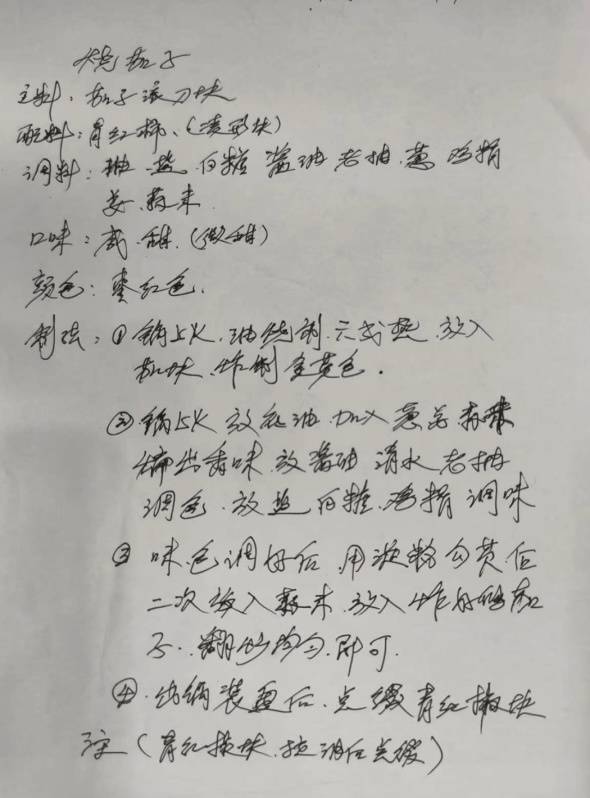 烧茄子
主料：茄子滚刀块
配料：青红椒、(菱形块)
调料：油.盐.白糖 酱油 老抽.葱 鸡精
姜.蒜末
口味：咸.甜.(微甜)
颜色：枣红色.
制法：①锅上火.油烧制.六成热.放入
茄块.炸制金黄色.
②锅上火 放底油.加入葱姜蒜末
煸出香味.放酱油 清水 老抽
调色.放盐 白糖.鸡精 调味
③味.色调好后.用淀粉勾芡后
二次放入蒜末.放入炸好的茄
子.翻炒均匀.即可.
④.出锅装盘后.点缀青红椒块
注(青红椒块.拉油后点缀)